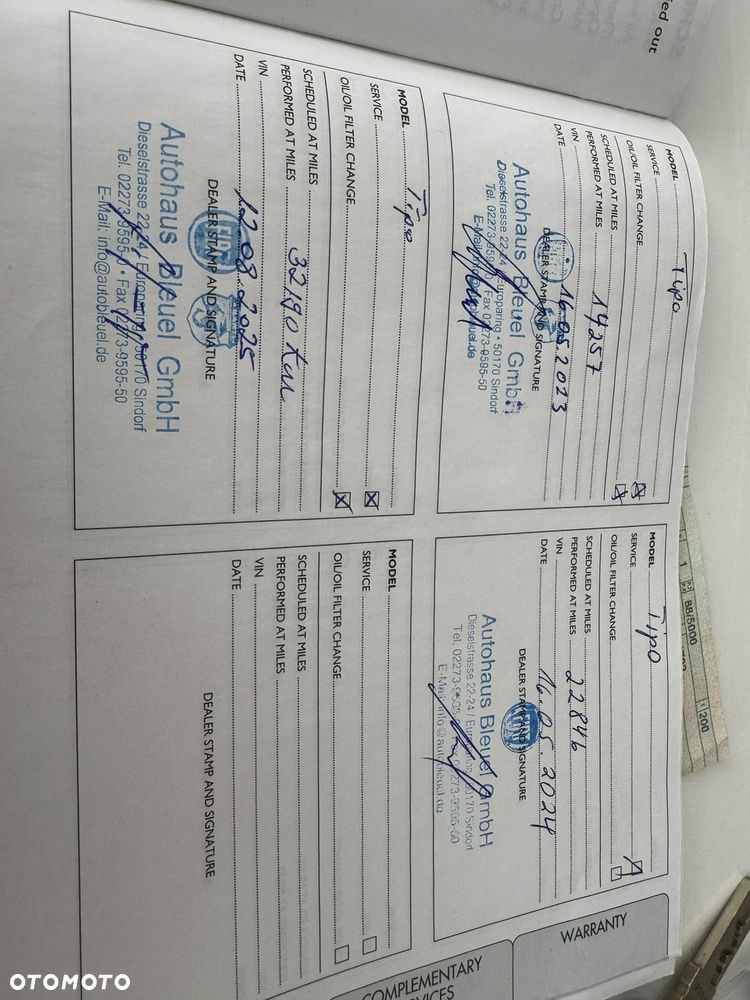 ied out
MODEL Tipo
SERVICE
OIL/OIL FILTER CHANGE
SCHEDULED AT MILES
PERFORMED AT MILES 14257
VIN
DATE 16.05.2023
DEALER STAMP AND SIGNATURE
Autohaus Bleuel GmbH
Dieselstrasse 22-24 / Europaring • 50170 Sindorf
Tel. 02273-9595-0 • Fax 02273-9595-50
MODEL Tipo
SERVICE
OIL/OIL FILTER CHANGE
SCHEDULED AT MILES
PERFORMED AT MILES 22846
VIN
DATE 16.05.2024
DEALER STAMP AND SIGNATURE
Autohaus Bleuel GmbH
Dieselstrasse 22-24 / Europaring 50170 Sindorf
E-Mail: info@autobleuel.de
MODEL Tipo
SERVICE
OIL/OIL FILTER CHANGE
SCHEDULED AT MILES
PERFORMED AT MILES 32190 km
VIN
DATE 12.08.2025
DEALER STAMP AND SIGNATURE
Autohaus Bleuel GmbH
Dieselstrasse 22-24 / Europaring • 50170 Sindorf
Tel. 02273-9595-0 • Fax 02273-9595-50
E-Mail: info@autobleuel.de
MODEL
SERVICE
OIL/OIL FILTER CHANGE
SCHEDULED AT MILES
PERFORMED AT MILES
VIN
DATE
DEALER STAMP AND SIGNATURE
WARRANTY
COMPLEMENTARY
1
88/5000
200
OTOMOTO